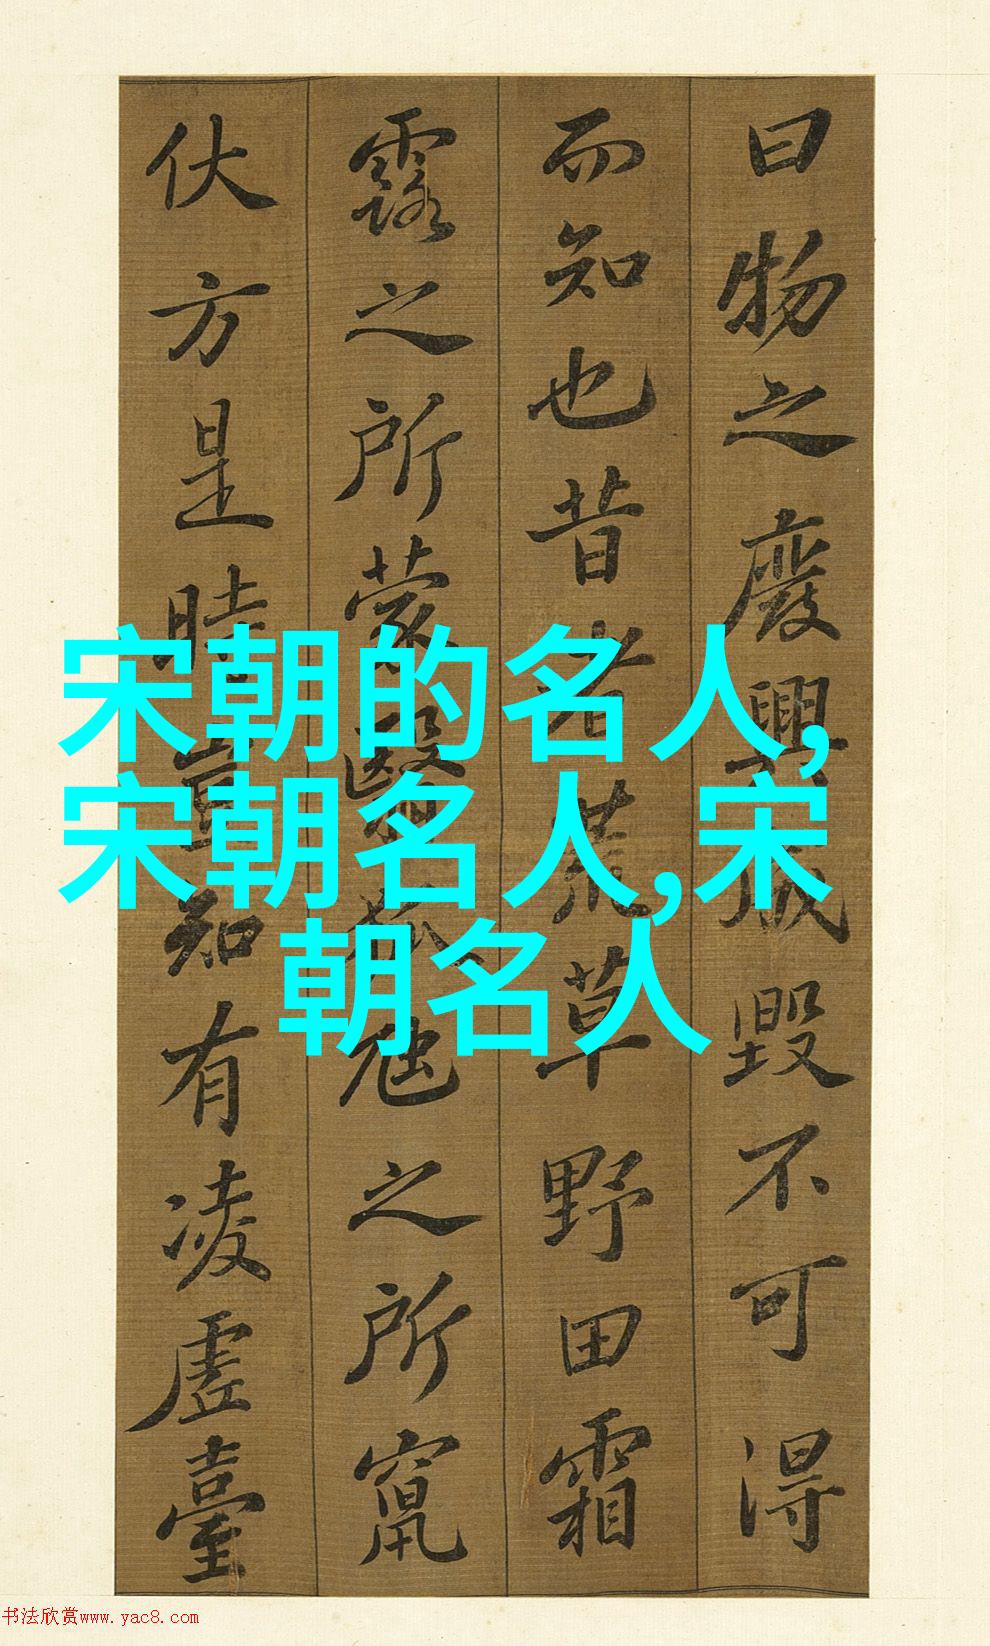 曰物之廢興成毀不可得
而知也昔者荒草野田霜
露之所蒙翳狐虺之所竄
伏方是時豈知有凌虛臺
宋朝的名人,
宋朝名人,宋
朝名人
书法欣赏www.yac8.com